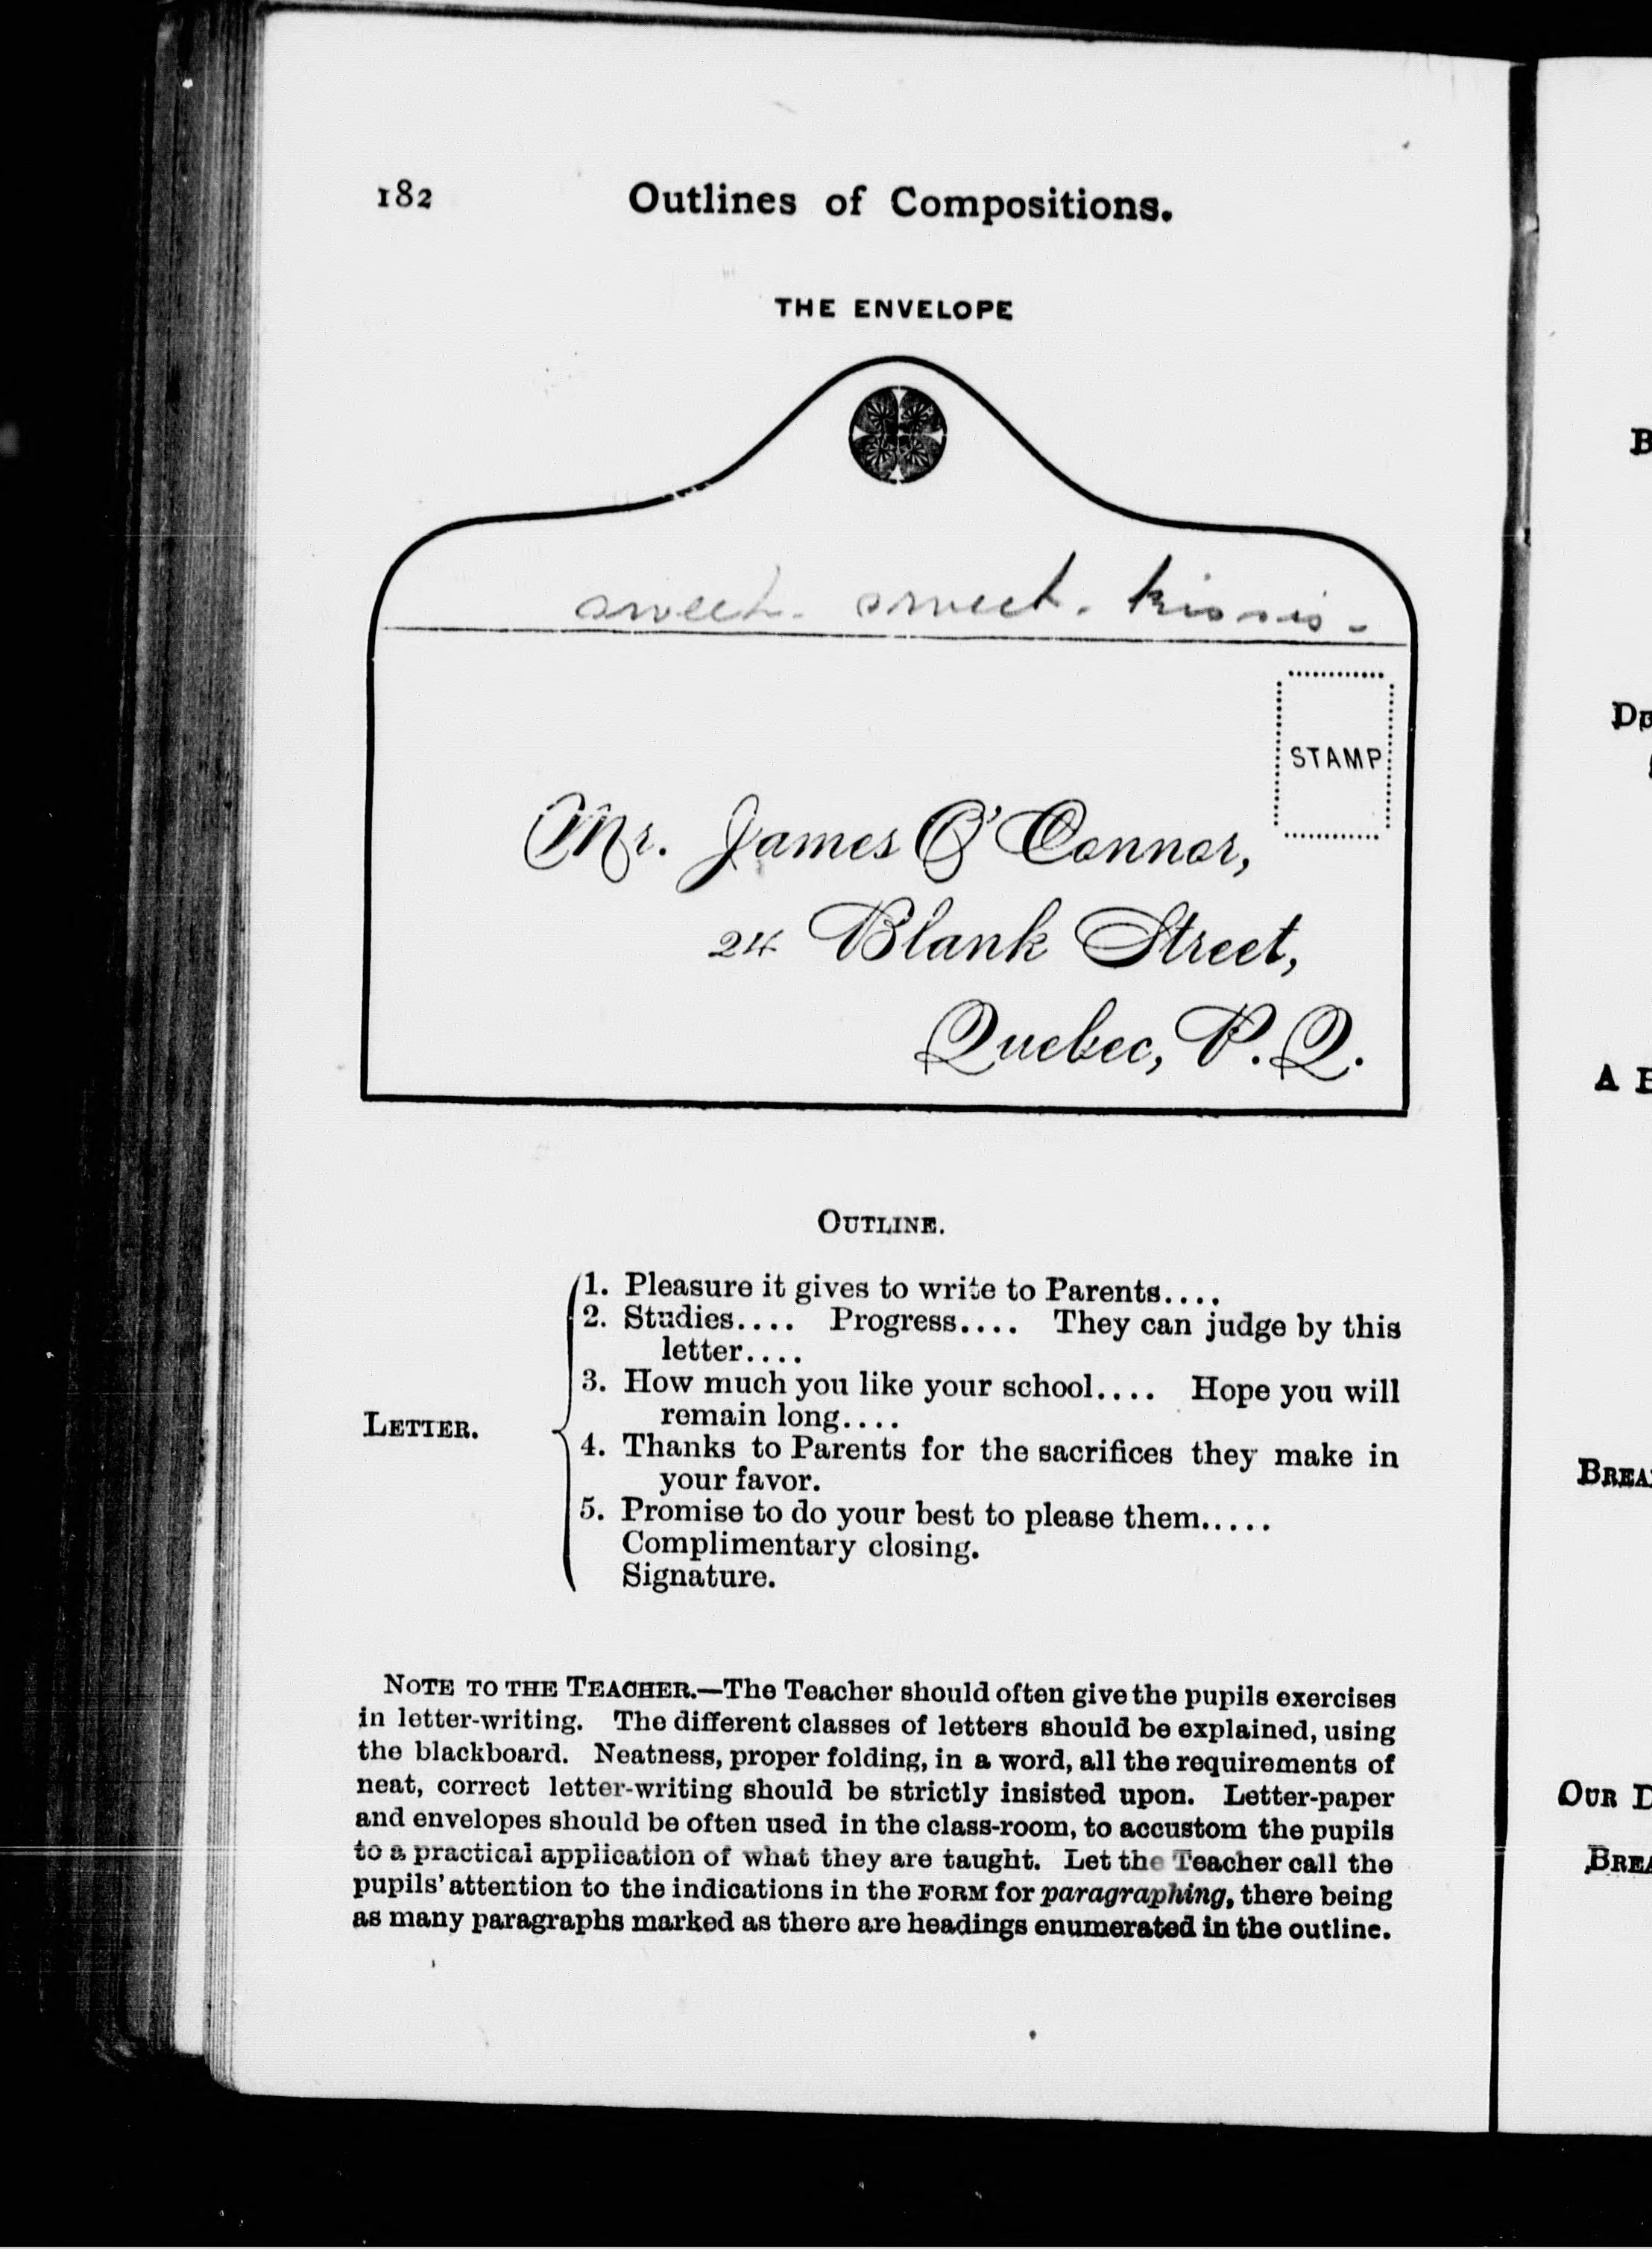 182
Outlines of Compositions.
THE ENVELOPE
sweet. sweet. kissis.
STAMP
Mr. James O'Connor,
24 Blank Street,
Quebec, P. Q.
OUTLINE.
LETTER.
1. Pleasure it gives to write to Parents....
2. Studies.... Progress.... They can judge by this
letter....
3. How much you like your school.... Hope you will
remain long....
4. Thanks to Parents for the sacrifices they make in
your favor.
5. Promise to do your best to please them.....
Complimentary closing.
Signature.
NOTE TO THE TEACHER.—The Teacher should often give the pupils exercises
in letter-writing. The different classes of letters should be explained, using
the blackboard. Neatness, proper folding, in a word, all the requirements of
neat, correct letter-writing should be strictly insisted upon. Letter-paper
and envelopes should be often used in the class-room, to accustom the pupils
to a practical application of what they are taught. Let the Teacher call the
pupils' attention to the indications in the FORM for paragraphing, there being
as many paragraphs marked as there are headings enumerated in the outline.
A
OUR